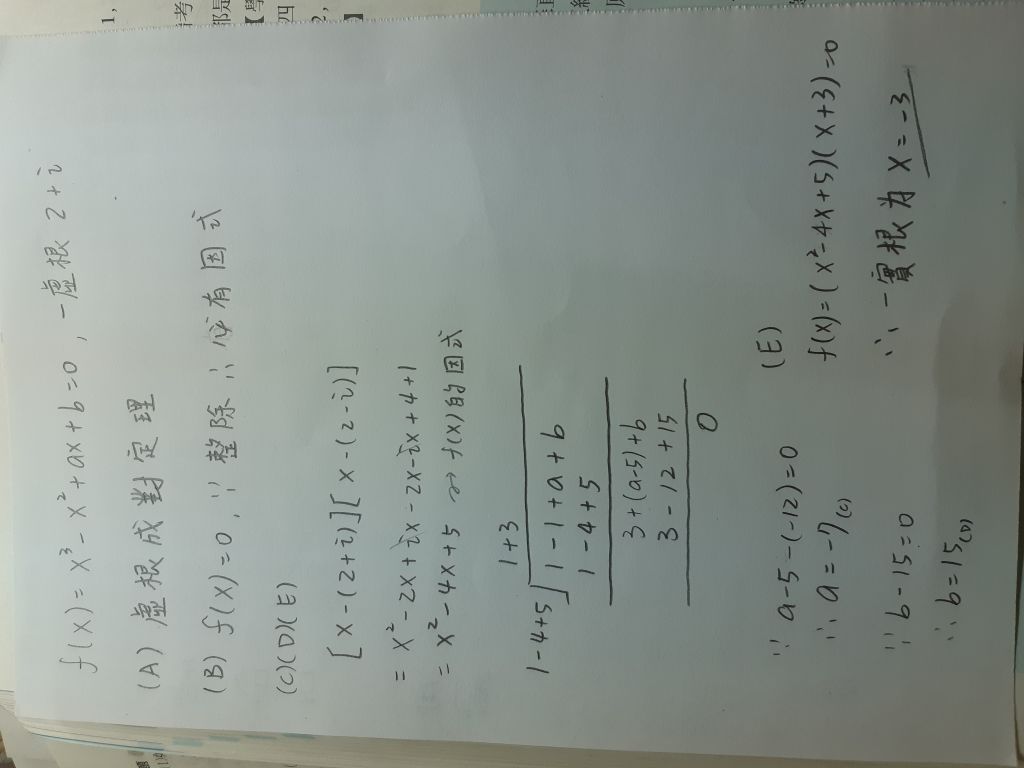 f(x) = x³ - x² + ax + b = 0 , 一虛根 2+i
(A) 虛根成對定理
(B) f(x) = 0 , ∵ 整除 ∴ 必有因式
(C)(D)(E)
[x-(2+i)][x-(2-i)]
= x² - 2x + ix - 2x - ix + 4 + 1
= x² - 4x + 5 → f(x)的因式
1+3
1-4+5 ) 1-1+a+b
1-4+5
3+(a-5)+b
3-12+15
0
∵ a-5-(-12)=0
∴ a=-7 (C)
∵ b-15=0
∴ b=15 (D)
(E)
f(x)=(x²-4x+5)(x+3)=0
∴ 一實根為 x=-3